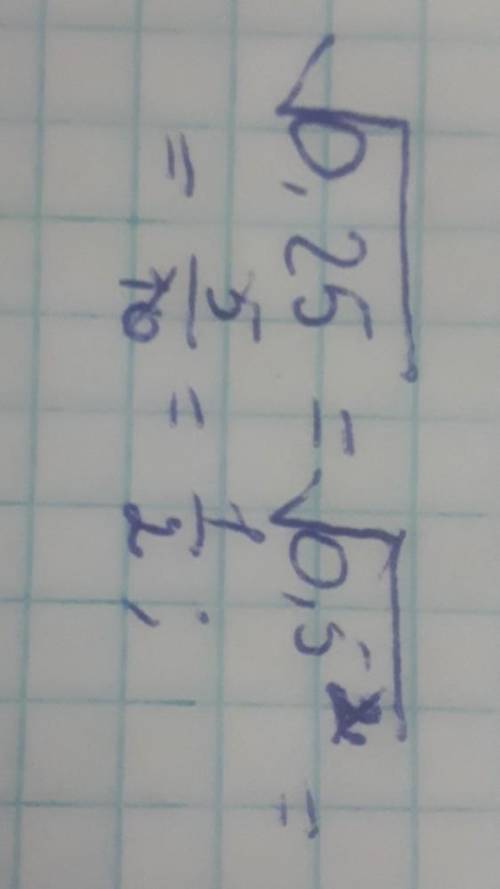 √0,25 = √0,5² =
= 5/10 = 1/2;